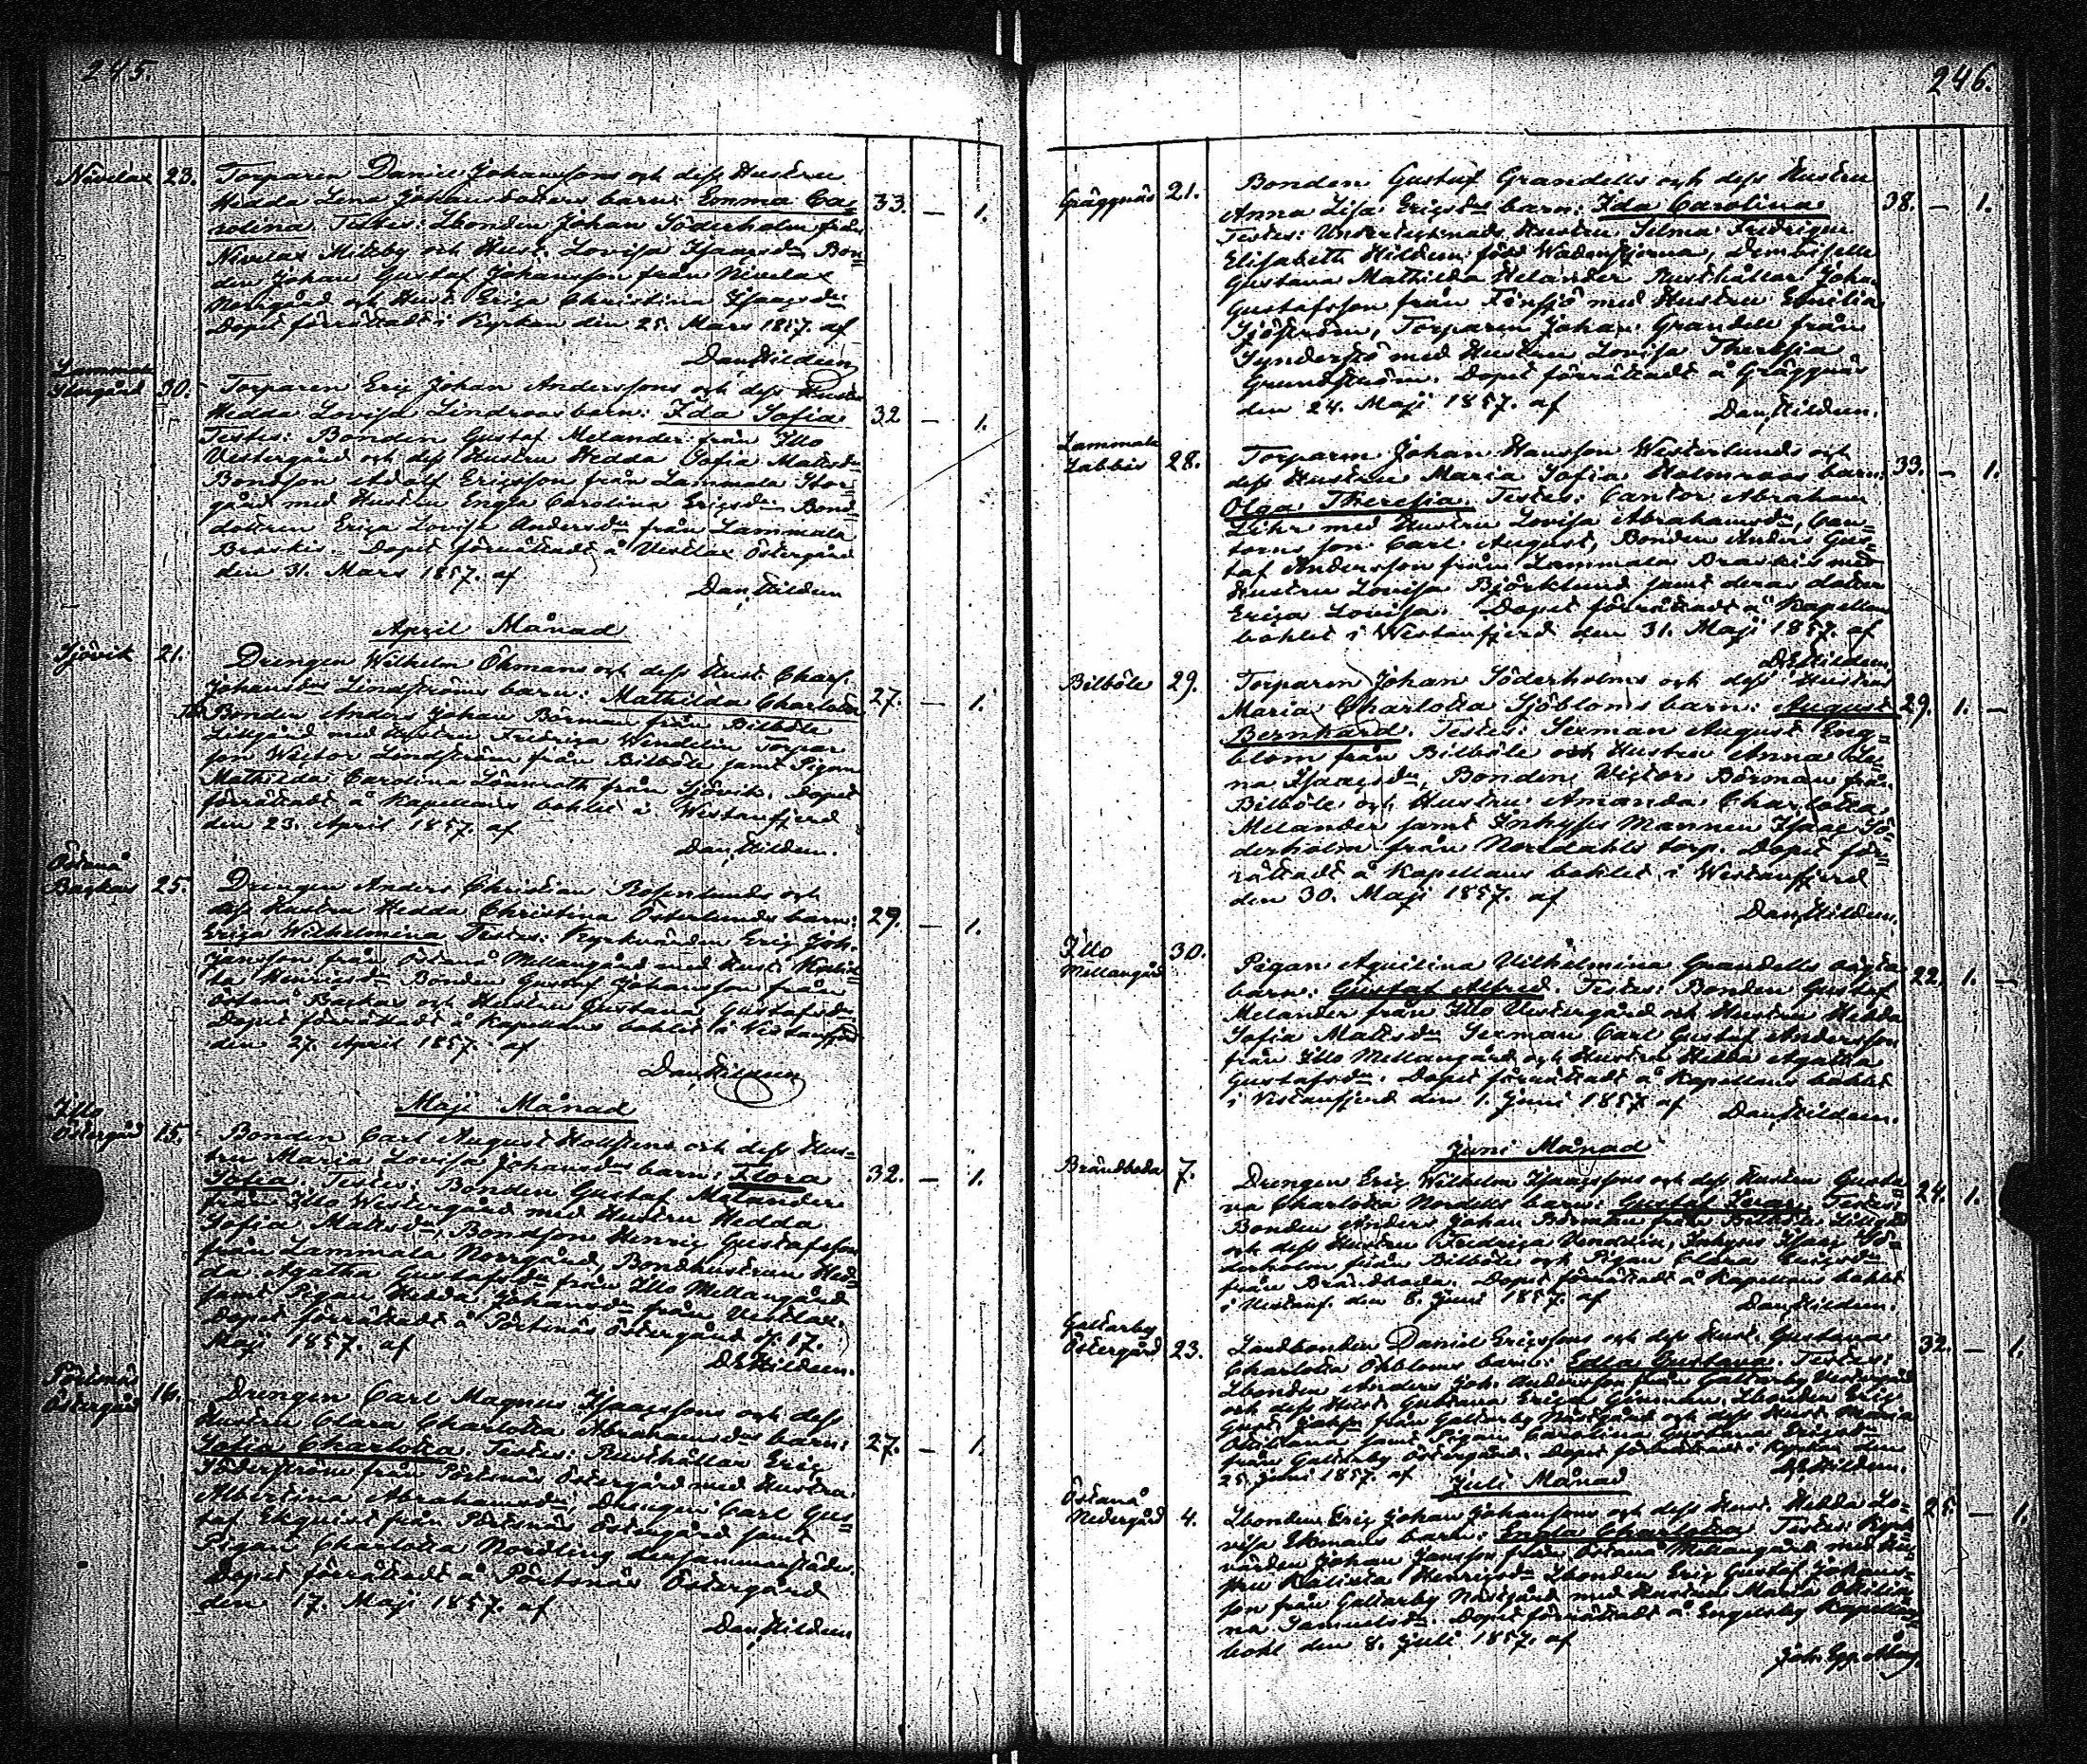 245.
Nivelax 23. Torparen Daniel Johanssons och dess Hustru
Hedda Lena Johansdotters barn: Emma Ca= 33. — 1.
rolina. Testes: Lbonden Johan Söderholm från
Nivelax Mileby och Hust. Lovisa Isaacsdr Bon=
den Johan Gustaf Johansson från Nivelax
Norrgård och Hust. Erica Christina Isaacsdr
Dopet förrättadt i Kyrkan den 25. Mars 1857. af
Dan. Hildeen
Lammala
Storgård 30. Torparen Eric Johan Anderssons och dess Hustru
Hedda Lovisa Lindroos barn: Ida Sofia 32 — 1.
Testes: Bonden Gustaf Melander från Illo
Vestergård och dess Hustru Hedda Sofia Matsdr
Bondson Adolf Ericsson från Lammala Stor=
gård med Hustru Engla Carolina Ericsdr Bond=
dottren Erica Lovisa Andersdr från Lammala
Braskis. Dopet förrättadt å Vestlax Östergård
den 31. Mars 1857. af
Dan. Hildeen
April Månad
Sjövik 21. Drengen Wilhelm Öhmans och dess Hust. Charl.
Johansdrs Lindströms barn: Mathilda Charlotta 27. — 1.
Bonden Anders Johan Börman från Bilböle
Lillgård med Hustru Fredrica Wendelin Torpar
son Wictor Lindström från Bilböle samt Pigan
Mathilda Carolina Lönnroth från Sjövik. Dopet
förrättadt å Kapellans bohlet i Westanfjerd
den 23. April 1857. af
Dan. Hildeen.
Östanå
Backas 25. Drengen Anders Christian Rosenlunds och
dess Hustru Hedda Christina Österlunds barn: 29. — 1.
Erica Wilhelmina Testes: Kyrkvärden Eric Joh.
Jansson från Östanå Mellangård med Hust. Kalix
ta Henricsdr Bonden Gustaf Johansson från
Östanå Backas och Hustru Gustava Gustafsdr
Dopet förrättadt å Kapellans bohlet i Westanfjerd
den 27. April 1857. af
Dan. Hildeen
Maji Månad
Illo
Östergård 15. Bonden Carl August Holstens och dess Hus=
tru Maria Lovisa Johansdrs barn: Flora 32. — 1.
Sofia. Testes: Bonden Gustaf Melander
från Illo Westergård med Hustru Hedda
Sofia Matsdr, Bondson Henric Gustafsson
från Lammala Norrgård, Bondhustrun Hed=
da Agatha Gustafsdr från Illo Mellangård
samt Pigan Hedda Johansdr från Vestlax.
Dopet förrättadt å Pörtsnäs Östergård d. 17.
Maji 1857. af
D. Hildeen.
Pörtsnäs
Östergård 16. Drengen Carl Magnus Isaacssons och dess
Hustru Clara Charlotta Abrahamsdrs barn: 27. — 1.
Sofia Charlotta. Testes: Rusthållar Eric
Söderström från Pörtsnäs Östergård med Hustru
Albertina Abrahamsdr, Drengen Carl Gus=
taf Ekqvist från Pörtsnäs Östergård samt
Pigan Charlotta Nordling dersammastädes.
Dopet förrättadt å Pörtsnäs Östergård
den 17. Maji 1857. af
Dan. Hildeen
246.
Gräggnäs 21. Bonden Gustaf Grandells och dess Hustru
Anna Lisa Ericsdrs barn: Ida Carolina 38. — 1.
Testes: Undertecknads Hustru Selma Fredrique
Elisabeth Hildeen född Wadenstjerna, Demoiselle
Gustava Mathilda Helander Rusthållar Johan
Gustafsson från Finsjö med Hustru Emilia
Sjöström, Torparen Johan Grandell från
Synderstö med Hustru Lovisa Theresia
Grundström. Dopet förrättadt å Gräggnäs
den 24. Maji 1857. af Dan. Hildeen.
Lammala
Labbis 28. Torparen Johan Hansson Westerlunds och
dess Hustru Maria Sofia Holmroos barn: 33. — 1.
Olga Theresia. Testes: Cantor Abraham
Lihr med Hustru Lovisa Abrahamsdr, Can=
torns son Carl August, Bonden Anders Gus=
taf Andersson från Lammala Braskis med
Hustru Lovisa Björklund samt deras dotter
Erica Lovisa. Dopet förrättadt å Kapellans
bohlet i Westanfjerd den 31. Maji 1857. af
D. Hildeen.
Bilböle 29. Torparen Johan Söderholms och dess Hustrus
Maria Charlotta Sjöbloms barn: August 29. 1. —
Bernhard. Testes: Sexman August Eng=
blom från Bilböle och Hustru Anna Le=
na Isaacsdr, Bonden Wictor Börman från
Bilböle och Hustru Amanda Charlotta
Melander samt Inhyses Mannen Isaac Sö=
derholm från Norrdahls torp. Dopet för=
rättadt å Kapellans bohlet i Westanfjerd
den 30. Maji 1857. af
Dan. Hildeen.
Illo
Mellangård 30. Pigan Aqvilina Wilhelmina Grandells oägta 22. 1. —
barn: Gustaf Alfred. Testes: Bonden Gustaf
Melander från Illo Vestergård och Hustru Hedda
Sofia Matsdr Sexman Carl Gustaf Andersson
från Illo Mellangård och Hustru Hedda Agatha
Gustafsdr. Dopet förrättadt å Kapellans bohlet
i Vestanfjerd den 1. Juni 1857 af Dan. Hildeen.
Juni Månad
Brändboda 7. Drengen Eric Wilhelm Isaacssons och dess Hustru Gusta=
va Charlotta Nordells barn: Gustaf Ivar. Testes: 24. 1.
Bonden Anders Johan Börman från Bilböle Lillgård
och dess Hustru Fredrica Vendelin, Inhyses Isaac Sö=
derholm från Bilböle och Pigan Clara Ericsdr
från Brändboda. Dopet förrättadt å Kapellans bohlet
i Vestanf. den 8. Juni 1857. af Dan. Hildeen.
Galtarby
Östergård 23. Landbonden Daniel Ericssons och dess Hust. Gustava 32. — 1.
Charlotta Ekbloms barn: Edla Gustava. Testes:
Lbonden Anders Joh. Andersson från Galtarby Vestergård
och dess Hust. Gustava Erica Ginman. Lbonden Eric
Gust. Johss. från Galtarby Nästgård och dess Hust. Maria
Ottiliana samt Pigan Carolina Gustava Ericsdr
från Galtarby Östergård. Dopet förrättadt i Kyrkan den
25. Juni 1857. af D. Hildeen.
Juli Månad
Östanå
Nedergård 4. Lbonden Eric Johan Johanssons och dess Hust. Hedda Lo= 25. — 1.
visa Ekmans barn: Engla Charlotta Testes: Kyrk=
värden Johan Jansson från Östanå Mellangård med Hus=
tru Kalixta Henricsdr Lbonden Eric Gustaf Johans=
son från Galtarby Nästgård med Hustru Maria Ottilia
na Samuelsdr. Dopet förrättadt å Engelsby Kapellans
bohl den 8. Juli 1857. af